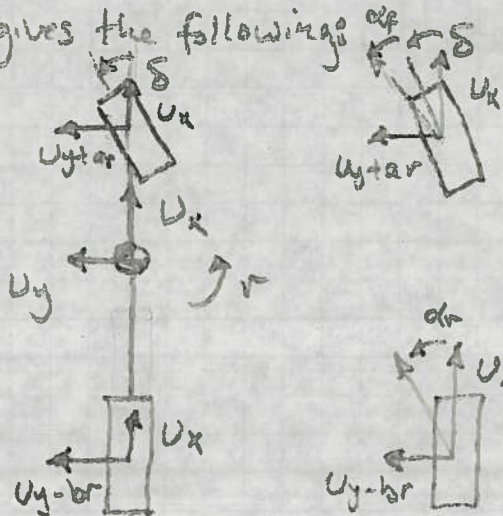 gives the following:
δ
Ux
Uy+ar
Ux
Uy
r
Ux
Uy-br
αf
δ
Ux
Uy+ar
αr
Uy-br